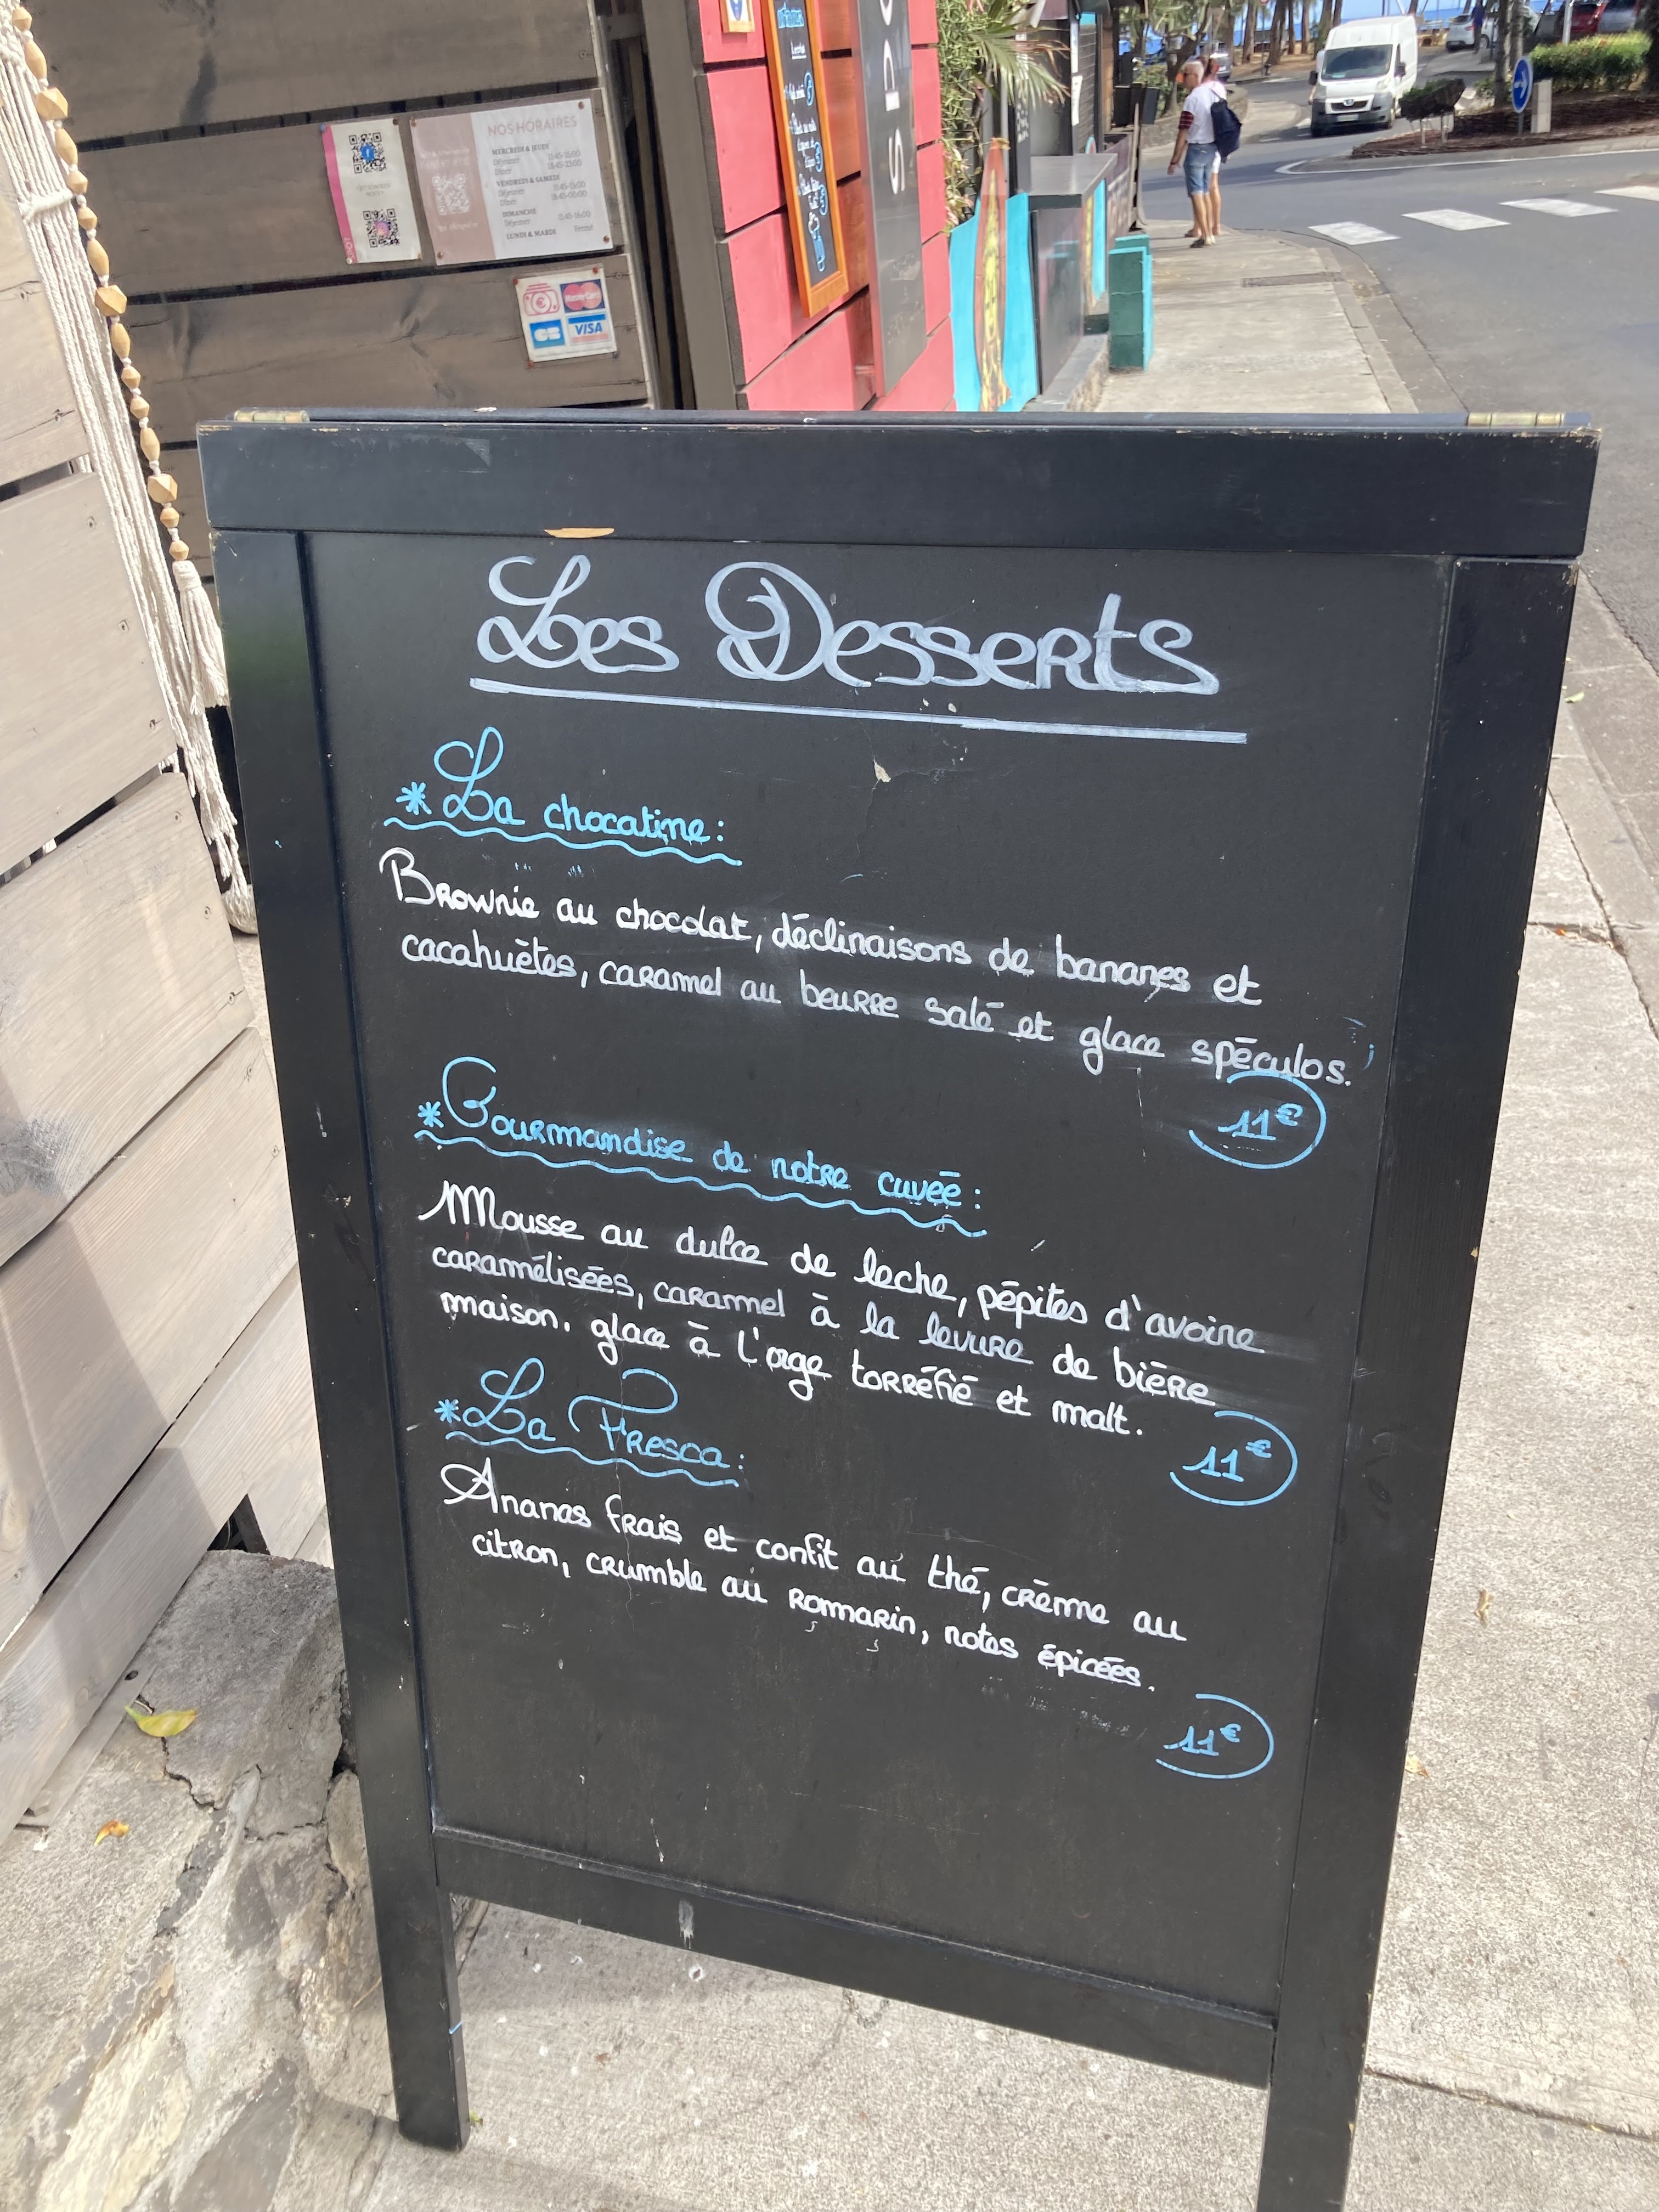 NOS HORAIRES
MERCREDI & JEUDI
Déjeuner
Dîner
VENDREDI & SAMEDI
Déjeuner
Dîner
DIMANCHE
Déjeuner
LUNDI & MARDI Fermé
MasterCard
CB VISA
Les Desserts
* La chocatine :
Brownie au chocolat, déclinaisons de bananes et
cacahuètes, caramel au beurre salé et glace spéculos.
11€
* Gourmandise de notre cuvée :
Mousse au dulce de leche, pépites d'avoine
caramélisées, caramel à la levure de bière
maison. glace à l'orge torréfié et malt.
11€
* La Fresca :
Ananas frais et confit au thé, crème au
citron, crumble au romarin, notes épicées.
11€